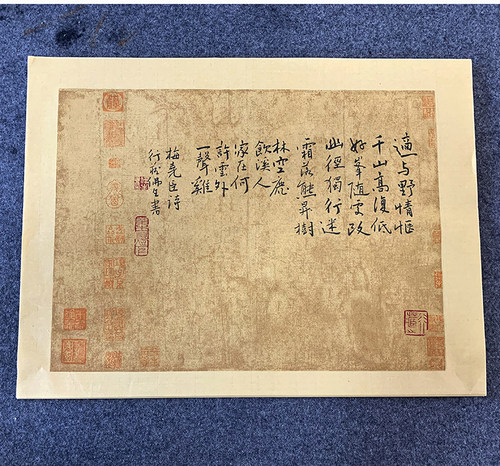 適与野情愜
千山高復低
好峯隨處改
幽徑獨行迷
霜落熊昇樹
林空鹿
飲溪人
家在何
許雲外
一聲雞
梅尧臣詩
書